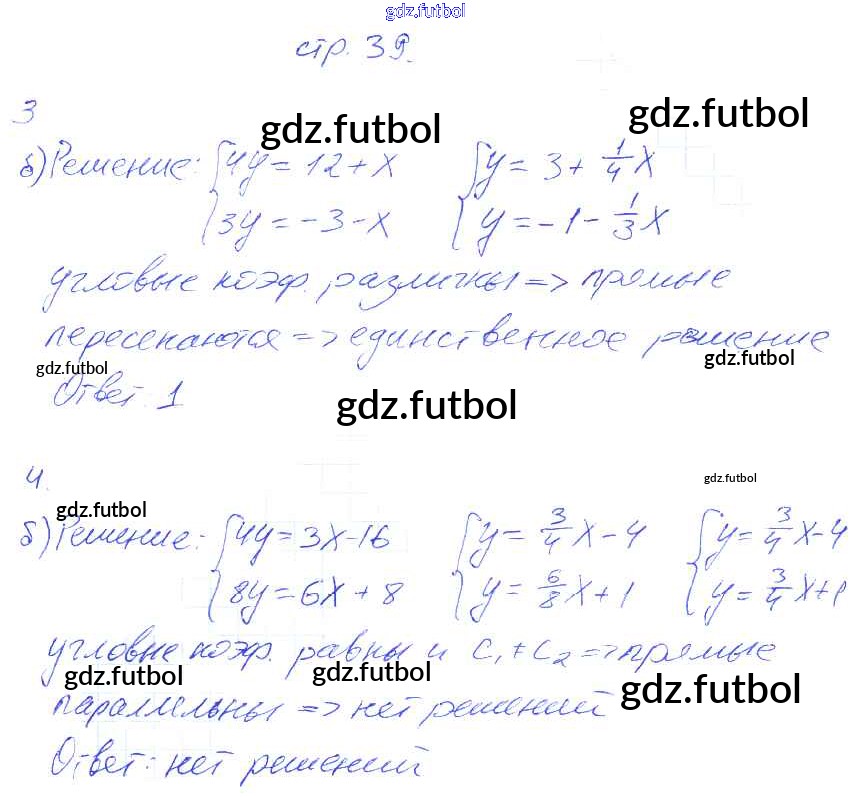 gdz.futbol
стр. 39.
3
gdz.futbol gdz.futbol
б) Решение: { 4y = 12 + x { y = 3 + 1/4 x
{ 3y = -3 - x { y = -1 - 1/3 x
угловые коэф. различны => прямые
пересекаются => единственное решение
gdz.futbol gdz.futbol
Ответ: 1
gdz.futbol
4.
gdz.futbol gdz.futbol
б) Решение: { 4y = 3x - 16 { y = 3/4 x - 4 { y = 3/4 x - 4
{ 8y = 6x + 8 { y = 6/8 x + 1 { y = 3/4 x + 1
угловые коэф. равны и c₁ ≠ c₂ => прямые
gdz.futbol gdz.futbol gdz.futbol
параллельны => нет решений
Ответ: нет решений